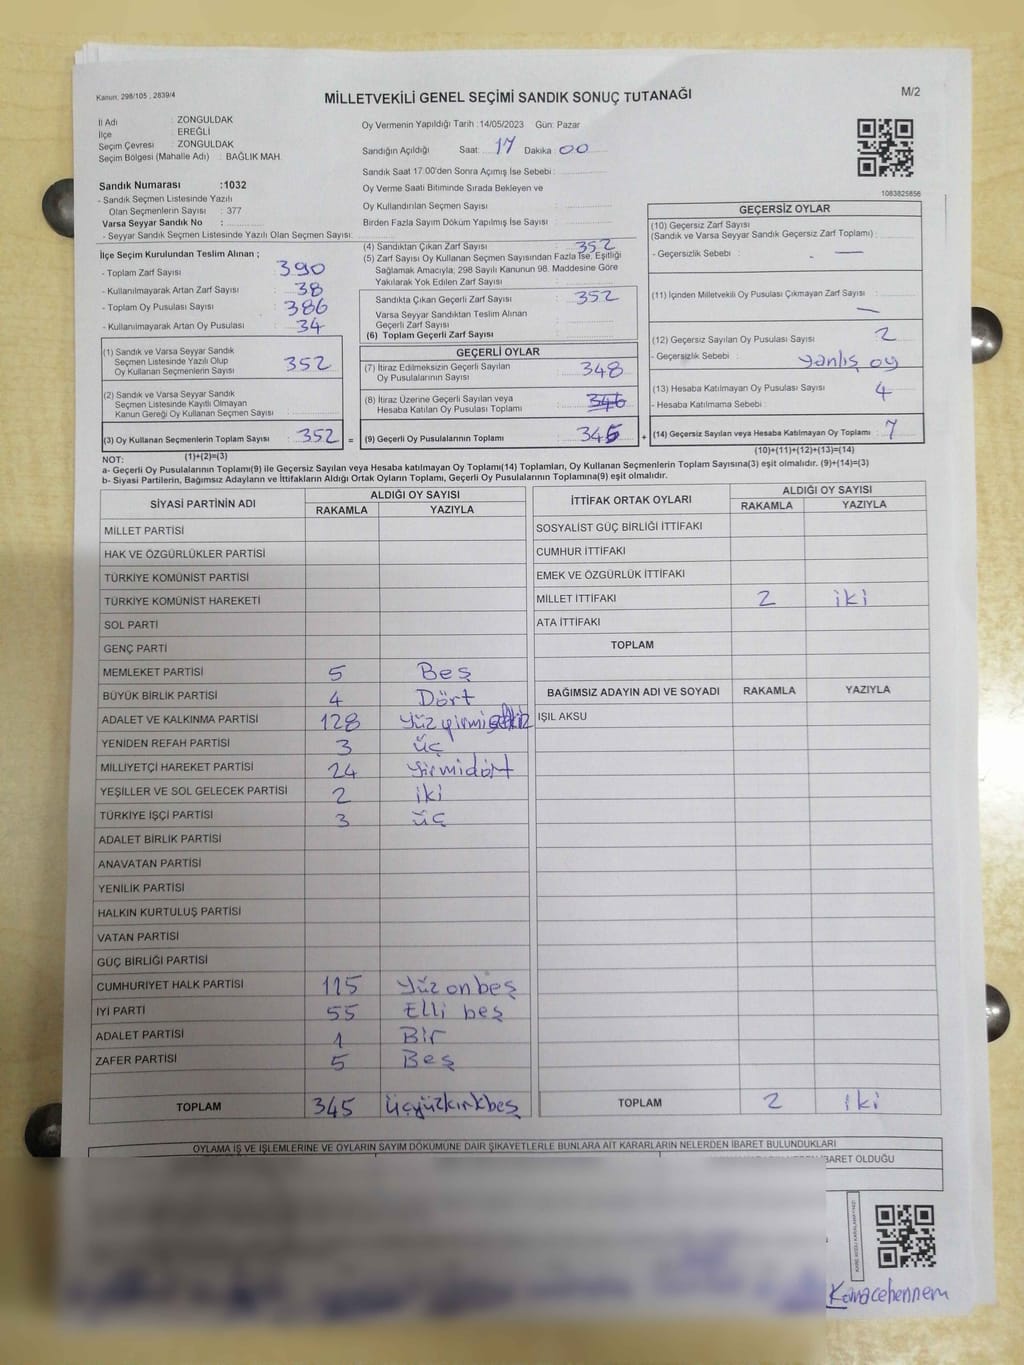 Kanun. 298/105 , 2839/4
MİLLETVEKİLİ GENEL SEÇİMİ SANDIK SONUÇ TUTANAĞI
M/2
İl Adı : ZONGULDAK
İlçe : EREĞLİ
Seçim Çevresi : ZONGULDAK
Seçim Bölgesi (Mahalle Adı) : BAĞLIK MAH.
Sandık Numarası :1032
- Sandık Seçmen Listesinde Yazılı
Olan Seçmenlerin Sayısı : 377
Varsa Seyyar Sandık No :
- Seyyar Sandık Seçmen Listesinde Yazılı Olan Seçmen Sayısı:
Oy Vermenin Yapıldığı Tarih :14/05/2023 Gün: Pazar
Sandığın Açıldığı Saat: 17 Dakika: 00
Sandık Saat 17.00'den Sonra Açımış İse Sebebi :
Oy Verme Saati Bitiminde Sırada Bekleyen ve
Oy Kullandırılan Seçmen Sayısı :
Birden Fazla Sayım Döküm Yapılmış İse Sayısı :
1083825856
İlçe Seçim Kurulundan Teslim Alınan ;
- Toplam Zarf Sayısı : 390
- Kullanılmayarak Artan Zarf Sayısı : 38
- Toplam Oy Pusulası Sayısı : 386
- Kullanılmayarak Artan Oy Pusulası : 34
(1) Sandık ve Varsa Seyyar Sandık
Seçmen Listesinde Yazılı Olup
Oy Kullanan Seçmenlerin Sayısı : 352
(2) Sandık ve Varsa Seyyar Sandık
Seçmen Listesinde Kayıtlı Olmayan
Kanun Gereği Oy Kullanan Seçmen Sayısı :
(3) Oy Kullanan Seçmenlerin Toplam Sayısı : 352 =
(1)+(2)=(3)
(4) Sandıktan Çıkan Zarf Sayısı : 352
(5) Zarf Sayısı Oy Kullanan Seçmen Sayısından Fazla İse, Eşitliği
Sağlamak Amacıyla; 298 Sayılı Kanunun 98. Maddesine Göre
Yakılarak Yok Edilen Zarf Sayısı :
Sandıkta Çıkan Geçerli Zarf Sayısı : 352
Varsa Seyyar Sandıktan Teslim Alınan
Geçerli Zarf Sayısı :
(6) Toplam Geçerli Zarf Sayısı :
GEÇERLİ OYLAR
(7) İtiraz Edilmeksizin Geçerli Sayılan
Oy Pusulalarının Sayısı : 348
(8) İtiraz Üzerine Geçerli Sayılan veya
Hesaba Katılan Oy Pusulası Toplamı :
(9) Geçerli Oy Pusulalarının Toplamı : +
GEÇERSİZ OYLAR
(10) Geçersiz Zarf Sayısı
(Sandık ve Varsa Seyyar Sandık Geçersiz Zarf Toplamı) :
- Geçersizlik Sebebi : -
(11) İçinden Milletvekili Oy Pusulası Çıkmayan Zarf Sayısı :
-
(12) Geçersiz Sayılan Oy Pusulası Sayısı : 2
- Geçersizlik Sebebi : yanlış oy
(13) Hesaba Katılmayan Oy Pusulası Sayısı : 4
- Hesaba Katılmama Sebebi :
(14) Geçersiz Sayılan veya Hesaba Katılmayan Oy Toplamı : 7
(10)+(11)+(12)+(13)=(14)
NOT:
a- Geçerli Oy Pusulalarının Toplamı(9) ile Geçersiz Sayılan veya Hesaba katılmayan Oy Toplamı(14) Toplamları, Oy Kullanan Seçmenlerin Toplam Sayısına(3) eşit olmalıdır. (9)+(14)=(3)
b- Siyasi Partilerin, Bağımsız Adayların ve İttifakların Aldığı Ortak Oyların Toplamı, Geçerli Oy Pusulalarının Toplamına(9) eşit olmalıdır.
SİYASİ PARTİNİN ADI ALDIĞI OY SAYISI
RAKAMLA YAZIYLA
MİLLET PARTİSİ
HAK VE ÖZGÜRLÜKLER PARTİSİ
TÜRKİYE KOMÜNİST PARTİSİ
TÜRKİYE KOMÜNİST HAREKETİ
SOL PARTİ
GENÇ PARTİ
MEMLEKET PARTİSİ 5 Beş
BÜYÜK BİRLİK PARTİSİ 4 Dört
ADALET VE KALKINMA PARTİSİ 128 Yüzyirmisekiz
YENİDEN REFAH PARTİSİ 3 üç
MİLLİYETÇİ HAREKET PARTİSİ 24 yirmidört
YEŞİLLER VE SOL GELECEK PARTİSİ 2 iki
TÜRKİYE İŞÇİ PARTİSİ 3 üç
ADALET BİRLİK PARTİSİ
ANAVATAN PARTİSİ
YENİLİK PARTİSİ
HALKIN KURTULUŞ PARTİSİ
VATAN PARTİSİ
GÜÇ BİRLİĞİ PARTİSİ
CUMHURİYET HALK PARTİSİ 115 Yüz onbeş
İYİ PARTİ 55 Elli beş
ADALET PARTİSİ 1 Bir
ZAFER PARTİSİ 5 Beş
TOPLAM 345 üçyüzkırkbeş
İTTİFAK ORTAK OYLARI ALDIĞI OY SAYISI
RAKAMLA YAZIYLA
SOSYALİST GÜÇ BİRLİĞİ İTTİFAKI
CUMHUR İTTİFAKI
EMEK VE ÖZGÜRLÜK İTTİFAKI
MİLLET İTTİFAKI 2 iki
ATA İTTİFAKI
TOPLAM
BAĞIMSIZ ADAYIN ADI VE SOYADI RAKAMLA YAZIYLA
IŞIL AKSU
TOPLAM 2 iki
OYLAMA İŞ VE İŞLEMLERİNE VE OYLARIN SAYIM DÖKÜMÜNE DAİR ŞİKAYETLERLE BUNLARA AİT KARARLARIN NELERDEN İBARET BULUNDUKLARI
İBARET OLDUĞU